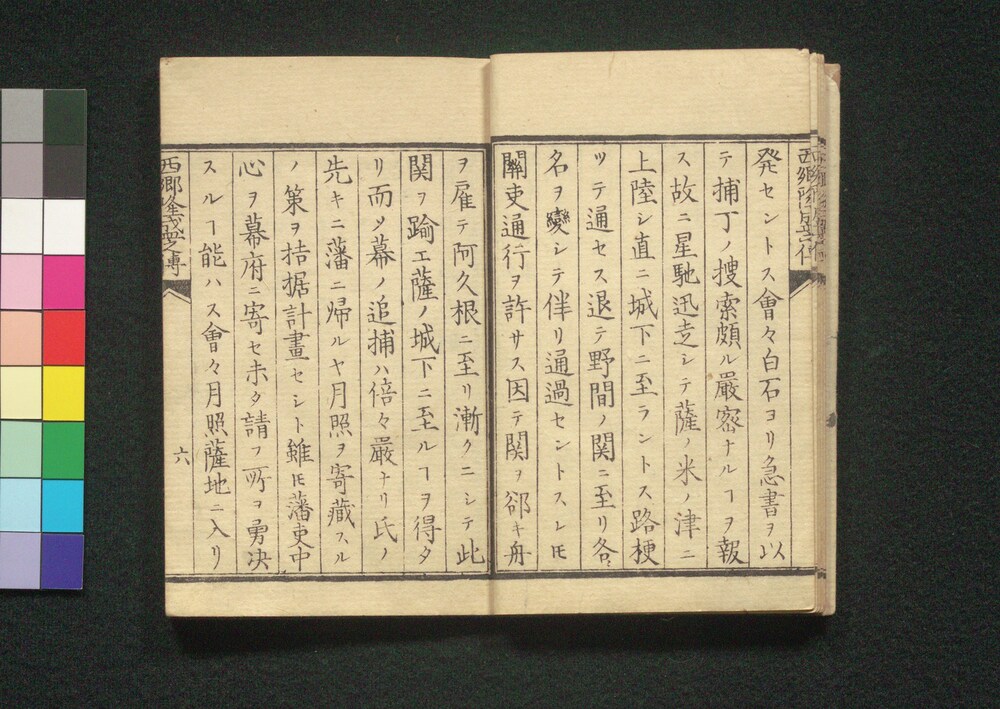 発セントス會々白石ヨリ急書ヲ以
テ捕丁ノ搜索頗ル嚴密ナルヿヲ報
ス故ニ星馳迅走シテ薩ノ米ノ津ニ
上陸シ直ニ城下ニ至ラントス路梗
ツテ通セス退テ野間ノ関ニ至リ各〻
名ヲ變シテ伴リ通過セントスレ𪜈
關吏通行ヲ許サス因テ関ヲ郤キ舟
ヲ雇テ阿久根ニ至リ漸クニシテ此
関ヲ踰エ薩ノ城下ニ至ルヿヲ得タ
リ而ソ幕ノ追捕ハ倍々嚴ナリ氏ノ
先キニ藩ニ帰ルヤ月照ヲ寄藏スル
ノ策ヲ拮据計畫セシト雖𪜈藩吏中
心ヲ幕府ニ寄セ未タ請フ所ヲ勇决
スルヿ能ハス會々月照薩地ニ入リ
西郷隆盛之傳
六